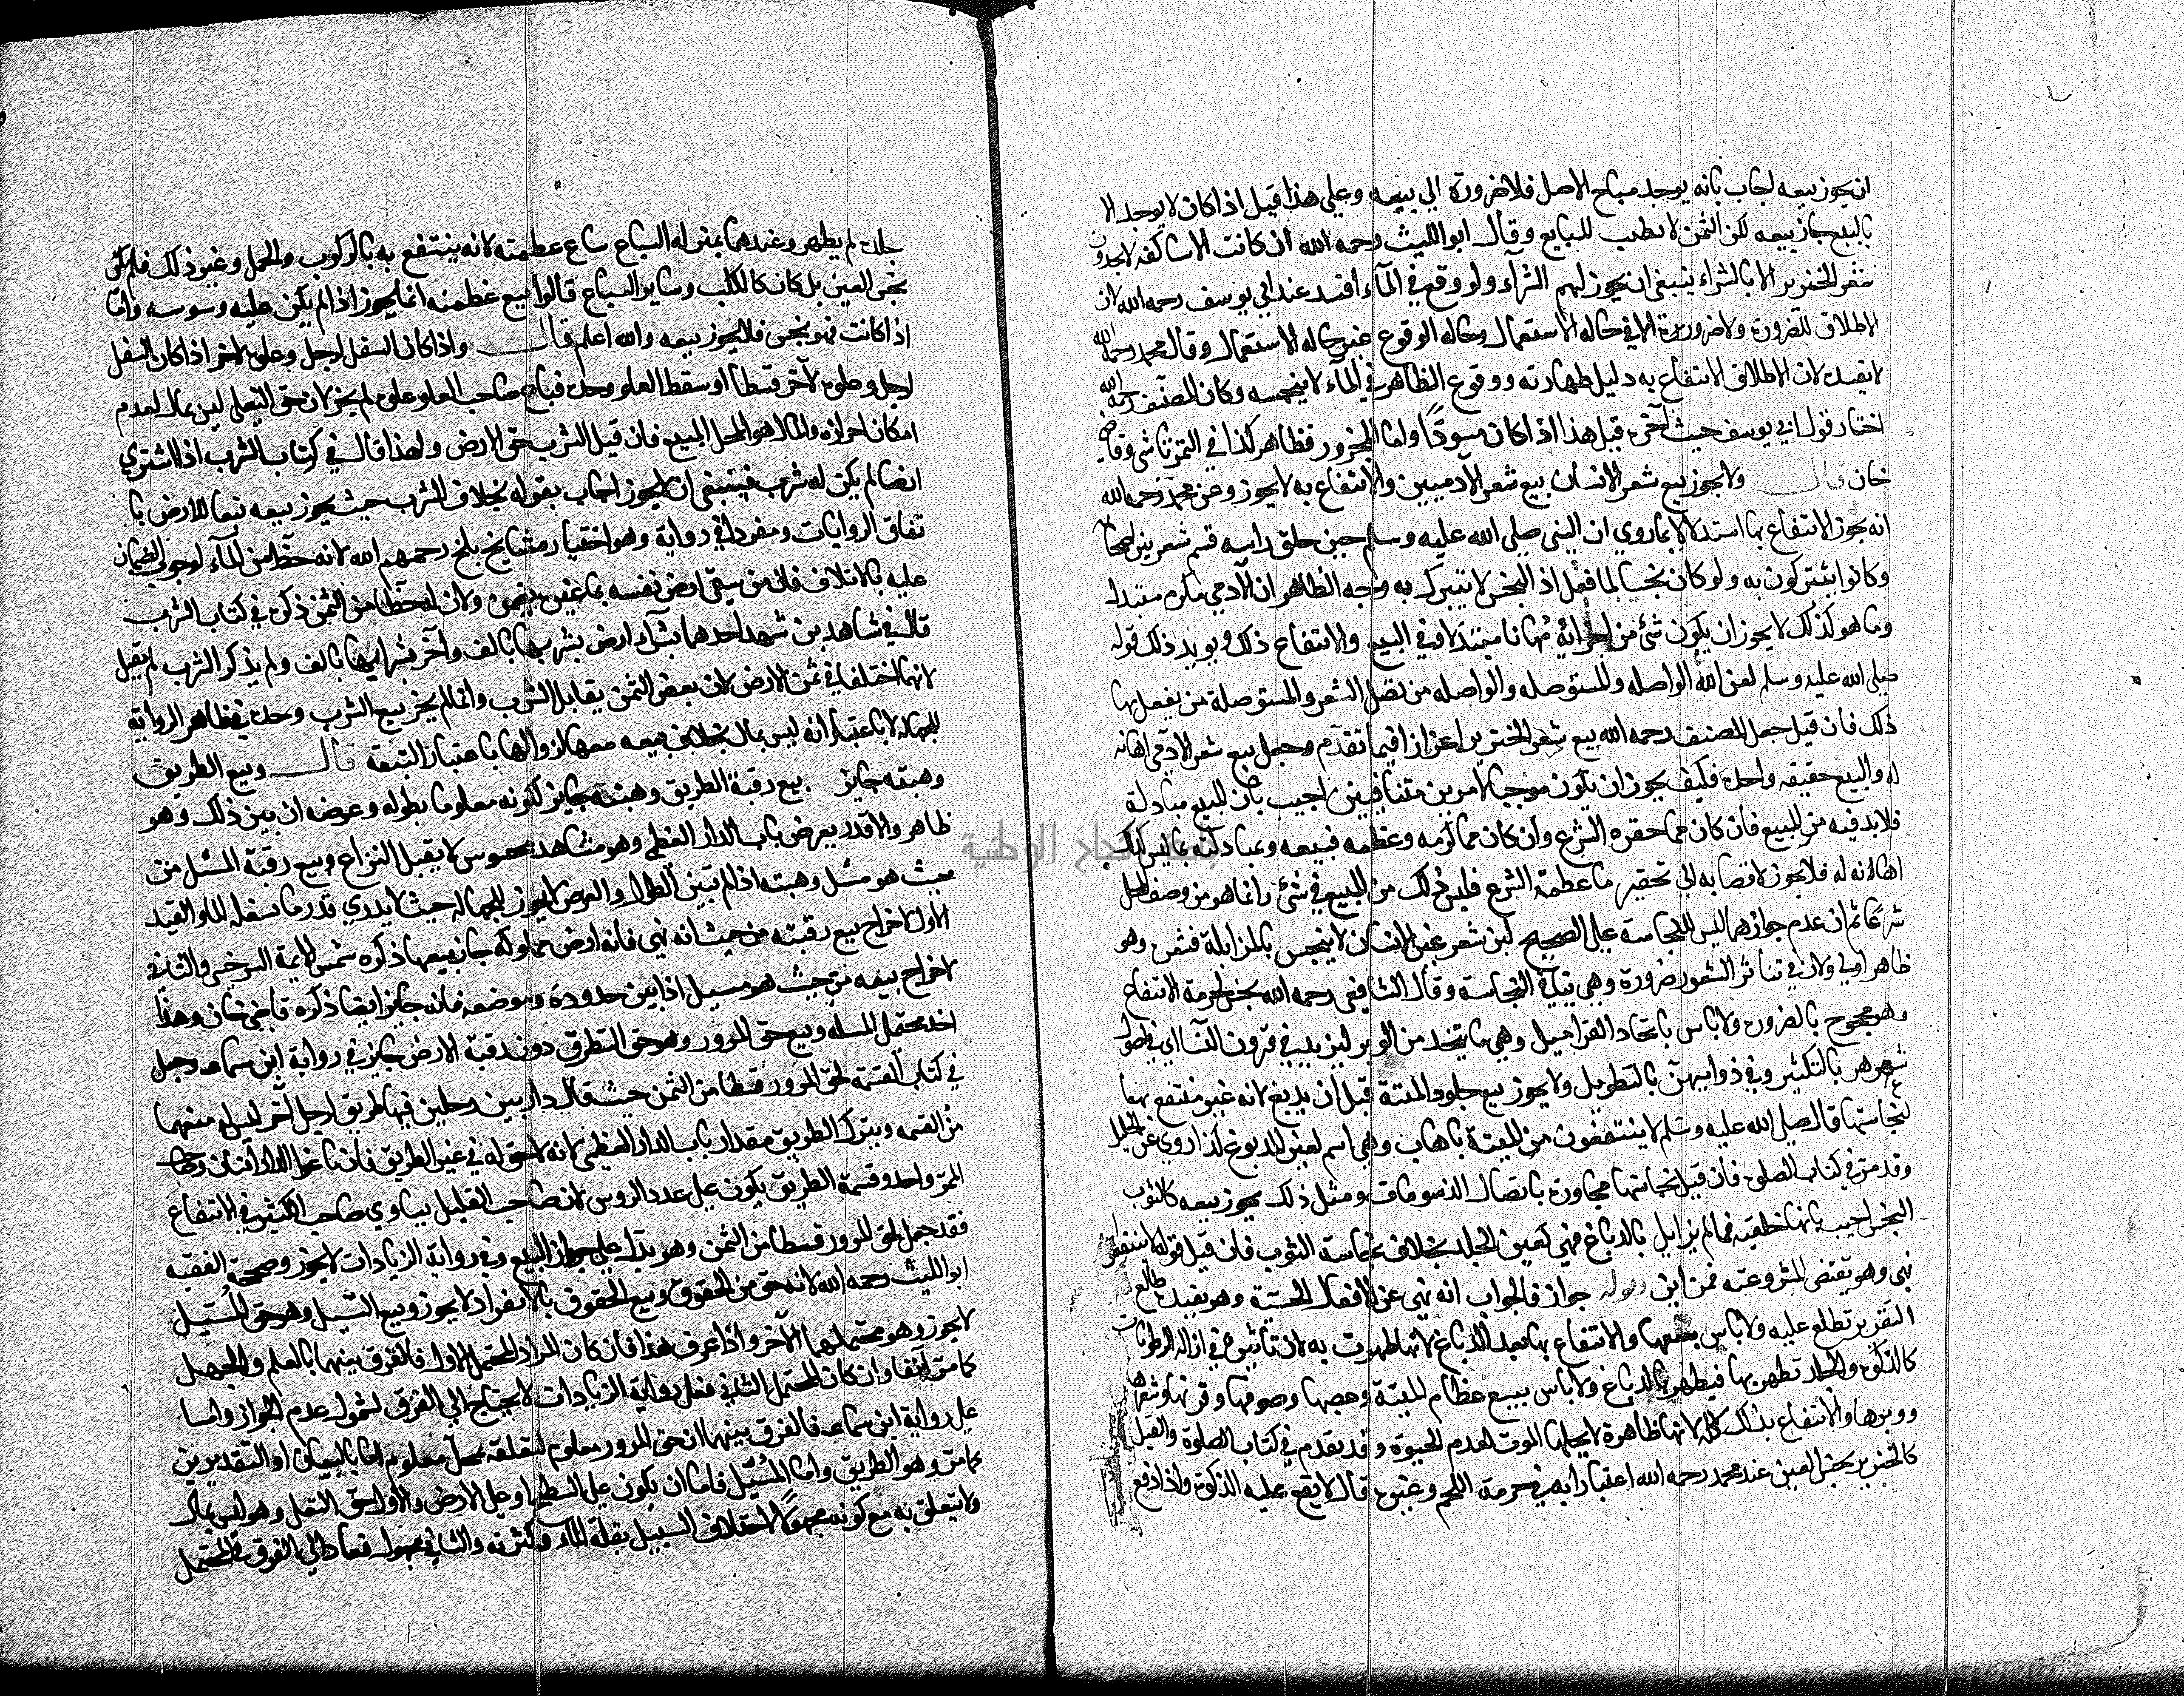 ان يجوز بيعه اجاب بانه يوجد مباح الاصل فلا ضرورة الي بيعه وعلي هذا قيل اذا كان لا يوجد الا
بالبيع جاز بيعه لكن الثمن لا يطيب للبايع وقال ابو الليث رحمه الله ان كانت الاساكفه لا يجدون
شعر الخنزير الا بالشراء ينبغي ان يجوز لهم الشرآء ولو وقع في المآء افسد عند ابي يوسف رحمه الله لان
الاطلاق للضرورة ولا ضرورة الا في حاله الاستعمال وحاله الوقوع غير حاله الاستعمال وقال محمد رحمه الله
لا يفسد لان الاطلاق الانتفاع به دليل طهارته ووقوع الطاهر في المآء لا ينجسه وكان المصنف رحمه الله
اختار قول ابي يوسف حيث اخره قيل هذا اذا كان منتوفا واما المجزور فطاهر كذا في التمرتاشي وقاضي
خان قال ولا يجوز بيع شعر الانسان بيع شعر الآدميين والانتفاع به لا يجوز وعن محمد رحمه الله
انه يجوز الانتفاع بها استدلالا بما روي ان النبي صلي الله عليه وسلم حين حلق راسه قسم شعره بين اصحابه
وكانوا يتبركون به ولو كان نجسا لما فعل اذ النجس لا يتبرك به وجه الظاهر ان الآدمي مكرم مبتذل
وما هو كذلك لا يجوز ان يكون شئ من اجزائه مهانا مبتذلا وفي البيع والانتفاع ذلك ويويد ذلك قوله
صلي الله عليه وسلم لعن الله الواصله والمستوصله والواصله من تصل الشعر والمستوصلة من يفعل بها
ذلك فان قيل جعل المصنف رحمه الله بيع شعر الخنزير اعزازا فيما تقدم وجعل بيع شعر الآدمي اهانه
له والبيع حقيقه واحده فكيف يجوز ان يكون موجبا لامرين متنافيين اجيب بان البيع مبادلة
فلا بد فيه من المبيع فان كان مما حقره الشرع وان كان مما كرمه وعظمه فبيعه ومبادلته بما ليس كذلك
اهانه له فلا يجوز لافضايه الي تحقير ما عظمه الشرع فليس ذلك من المبيع في شئ وانما هو من وصف المحل
شرعا ثم ان عدم جوازهما ليس للنجاسة علي الصحيح لان شعر غير الانسان لا ينجس بالمزايلة فشعره وهو
طاهر اولي ولان في تناثر الشعور ضرورة وهي تنافي النجاسة وقال الشافعي رحمه الله نجس لحرمة الانتفاع
وهو محجوج بالضرورة ولا باس باتخاذ القراميل وهي ما يتخذ من الوبر ليزيد في قرون النسا اي في اصول
شعرهن بالتكثير وفي ذوايبهن بالتطويل ولا يجوز بيع جلود الميتة قبل ان يدبغ لانه غير منتفع بها
لنجاستها قال صلي الله عليه وسلم لا ينتفعون من الميتة باهاب وهي اسم لغير المدبوغ كذا روي عن الخليل
وقد مر في كتاب الصلوة فان قيل نجاستها مجاورة باتصال الدسومات ومثل ذلك يجوز بيعه كالثوب
النجس اجيب بانها خلقيه فما لم يزايل بالدباغ فهي كعين الجلد بخلاف نجاسة الثوب فان قيل قوله لا ينتفعوا
نهي وهو يقتضي المشروعيه فمن اين جواز فالجواب انه نهي عن الافعال الحسية وهو يفيد طالع
التقرير تطلع عليه ولا باس ببيعها والانتفاع بها بعد الدباغ لانها طهرت به لان تاثيره في ازاله الرطوبات
كالذكوة والجلد تطهر بها فيطهر بالدباغ ولا باس ببيع عظام الميتة وعصبها وصوفها وقرنها وشعرها
ووبرها والانتفاع بذلك كله لانها طاهرة لا يحلها الموت لعدم الحيوة وقد تقدم في كتاب الصلوة والفيل
كالخنزير نجس العين عند محمد رحمه الله اعتبارا به في حرمة اللحم وغيره قال لا يقع عليه الذكوة واذا دفع
جلده لم يطهر وعندهما بمنزله السباع يباع عظمه لانه ينتفع به بالركوب والحمل وغير ذلك فلم يكن
نجس العين بل كان كالكلب وساير السباع قالوا بيع عظمه انما يجوز اذا لم يكن عليه دسومه واما
اذا كانت فهو نجس فلا يجوز بيعه والله اعلم قال واذا كان السفل لرجل وعلوه لاخر اذا كان السفل
لرجل وعلوه لآخر فسقطا او سقط العلو وحده فباع صاحب العلو علوه لم يجز لان حق التعلي ليس بمال لعدم
امكان احرازه والمال هو المحل المبيع فان قيل الشرب حق الارض ولهذا قال في كتاب الشرب اذا اشتري
ارضا لم يكن له شرب فينبغي ان لا يجوز اجاب بقوله بخلاف الشرب حيث يجوز بيعه تبعا للارض با
تفاق الروايات ومفردا في رواية وهو اختيار مشايخ بلخ رحمهم الله لانه حظ من المآء لوجوب الضمان
عليه بالاتلاف فان من سقي ارض نفسه بماء غيره يضمن ولان له حظا من الثمن ذكره في كتاب الشرب
قال في شاهدين شهد احدهما بشرآء ارض بشربها بالف وآخر بشرايها بالف ولم يذكر الشرب لم يقبل
لانهما اختلفا في ثمن الارض لان بعض الثمن يقابل الشرب وانما لم يجز بيع الشرب وحده في ظاهر الرواية
للجهالة لا باعتبار انه ليس بمال بخلاف بيعه معها لزوالها باعتبار التبعة قال وبيع الطريق
وهبته جايز بيع رقبة الطريق وهبته جايز لكونه معلوما بطوله وعرضه ان بين ذلك وهو
ظاهر والا قدر بعرض باب الدار العظمي وهو مشاهد محسوس لا يقبل النزاع وبيع رقبة المسيل من
حيث هو مسيل وهبته اذا لم تبين الطول والعرض لا يجوز للجهاله حيث لا يدري قدر ما يشغله الماء والقيد
الاول لاخراج بيع رقبته من حيث انه نهر فانه ارض مملوكة جاز بيعها ذكره شمس الايمة السرخسي والثاني
لاخراج بيعه من حيث هو مسيل اذا بين حدوده وموضعه فانه جايز ايضا ذكره قاضي خان وهذا
احد محتملي المسله وبيع حق المرور وهو حق التطرق دون رقبة الارض جايز في رواية ابن سماعه وجعل
في كتاب القسمة لحق المرور قسطا من الثمن حيث قال دار بين رجلين فيها طريق لرجل آخر ليس له منعهما
من القسمه ويترك الطريق مقدار باب الدار العظمي لانه لا حق له في غير الطريق فان باعوا الدار
الممر واحد وقسمة الطريق يكون علي عدد الروس لان صاحب القليل يساوي صاحب الكثير في الانتفاع
فقد جعل لحق المرور قسطا من الثمن وهو يدل علي جواز البيع وفي رواية الزيادات لا يجوز وصححه الفقيه
ابو الليث رحمه الله لانه حق من الحقوق وبيع الحقوق بالانفراد لا يجوز وبيع التسييل وهو حق المسيل
لا يجوز وهو محتملهما الآخر واذا عرف هذا فان كان المراد المحتمل الاول فالفرق بينهما بالعلم والجهل
كما مر آنفا وان كان المحتمل الثاني فعلي رواية الزيادات لا يحتاج الي الفرق لشمول عدم الجواز واما
علي رواية ابن سماعه فالفرق بينهما ان حق المرور معلوم لتعلقه بمحل معلوم اما بالبيان او التقدير
كما مر وهو الطريق واما المسيل فاما ان يكون علي السطح او علي الارض والاول حق التعلي وهو ليس بمال
ولا يتعلق به مع كونه مجهولا لاختلاف التسييل بقلة الماء وكثرته والثاني مجهول فعاد الي الفرق في المحتمل